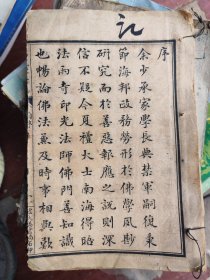 記
序
余少承家學長典禁軍嗣復東
節海邦政務勞形於佛學夙尠
研究而於善惡報應之說則深
信不疑今夏禮大士南海得晤
法雨寺印光法師佛門善知識
也暢論佛法兼及時事相與歎